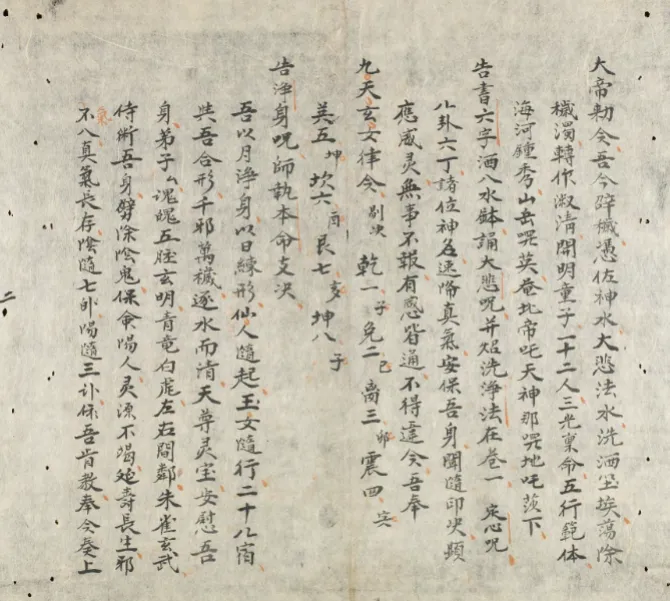 大帝勅令吾今辟穢憑佐神水大悲法水洗洒塵埃蕩除
穢濁轉作淑清開明童子一十二人三光稟命五行範体
海河鍾秀山岳咒英奄北帝吒天神那咒地吒茨下
告書六字洒八水鉢誦大悲咒并炤洗淨法在卷一 定心咒
八卦六丁諸位神名速降真氣安保吾身聞隨印決顕
應感灵無事不報有感皆通不得違令吾奉
九天玄女律令 剔决 乾一 子 兔二 己 离三 卯 震四 㝵
美五 坤 坎六 酉 艮七 亥 坤八 子
告淨身呪師執本命支决
吾以月淨身以日練形仙人隨起玉女隨行二十八宿
與吾合形千邪萬穢逐水而清天尊灵宝安慰吾
身弟子厶魂魄五胜玄明青竜白虎左右間鄰朱雀玄武
侍衛吾身劈除陰鬼保命陽人灵源不竭延壽長生邪
氣
不入真氣長存陰隨七外陽隨三训保吾肯教奉令奏上
二